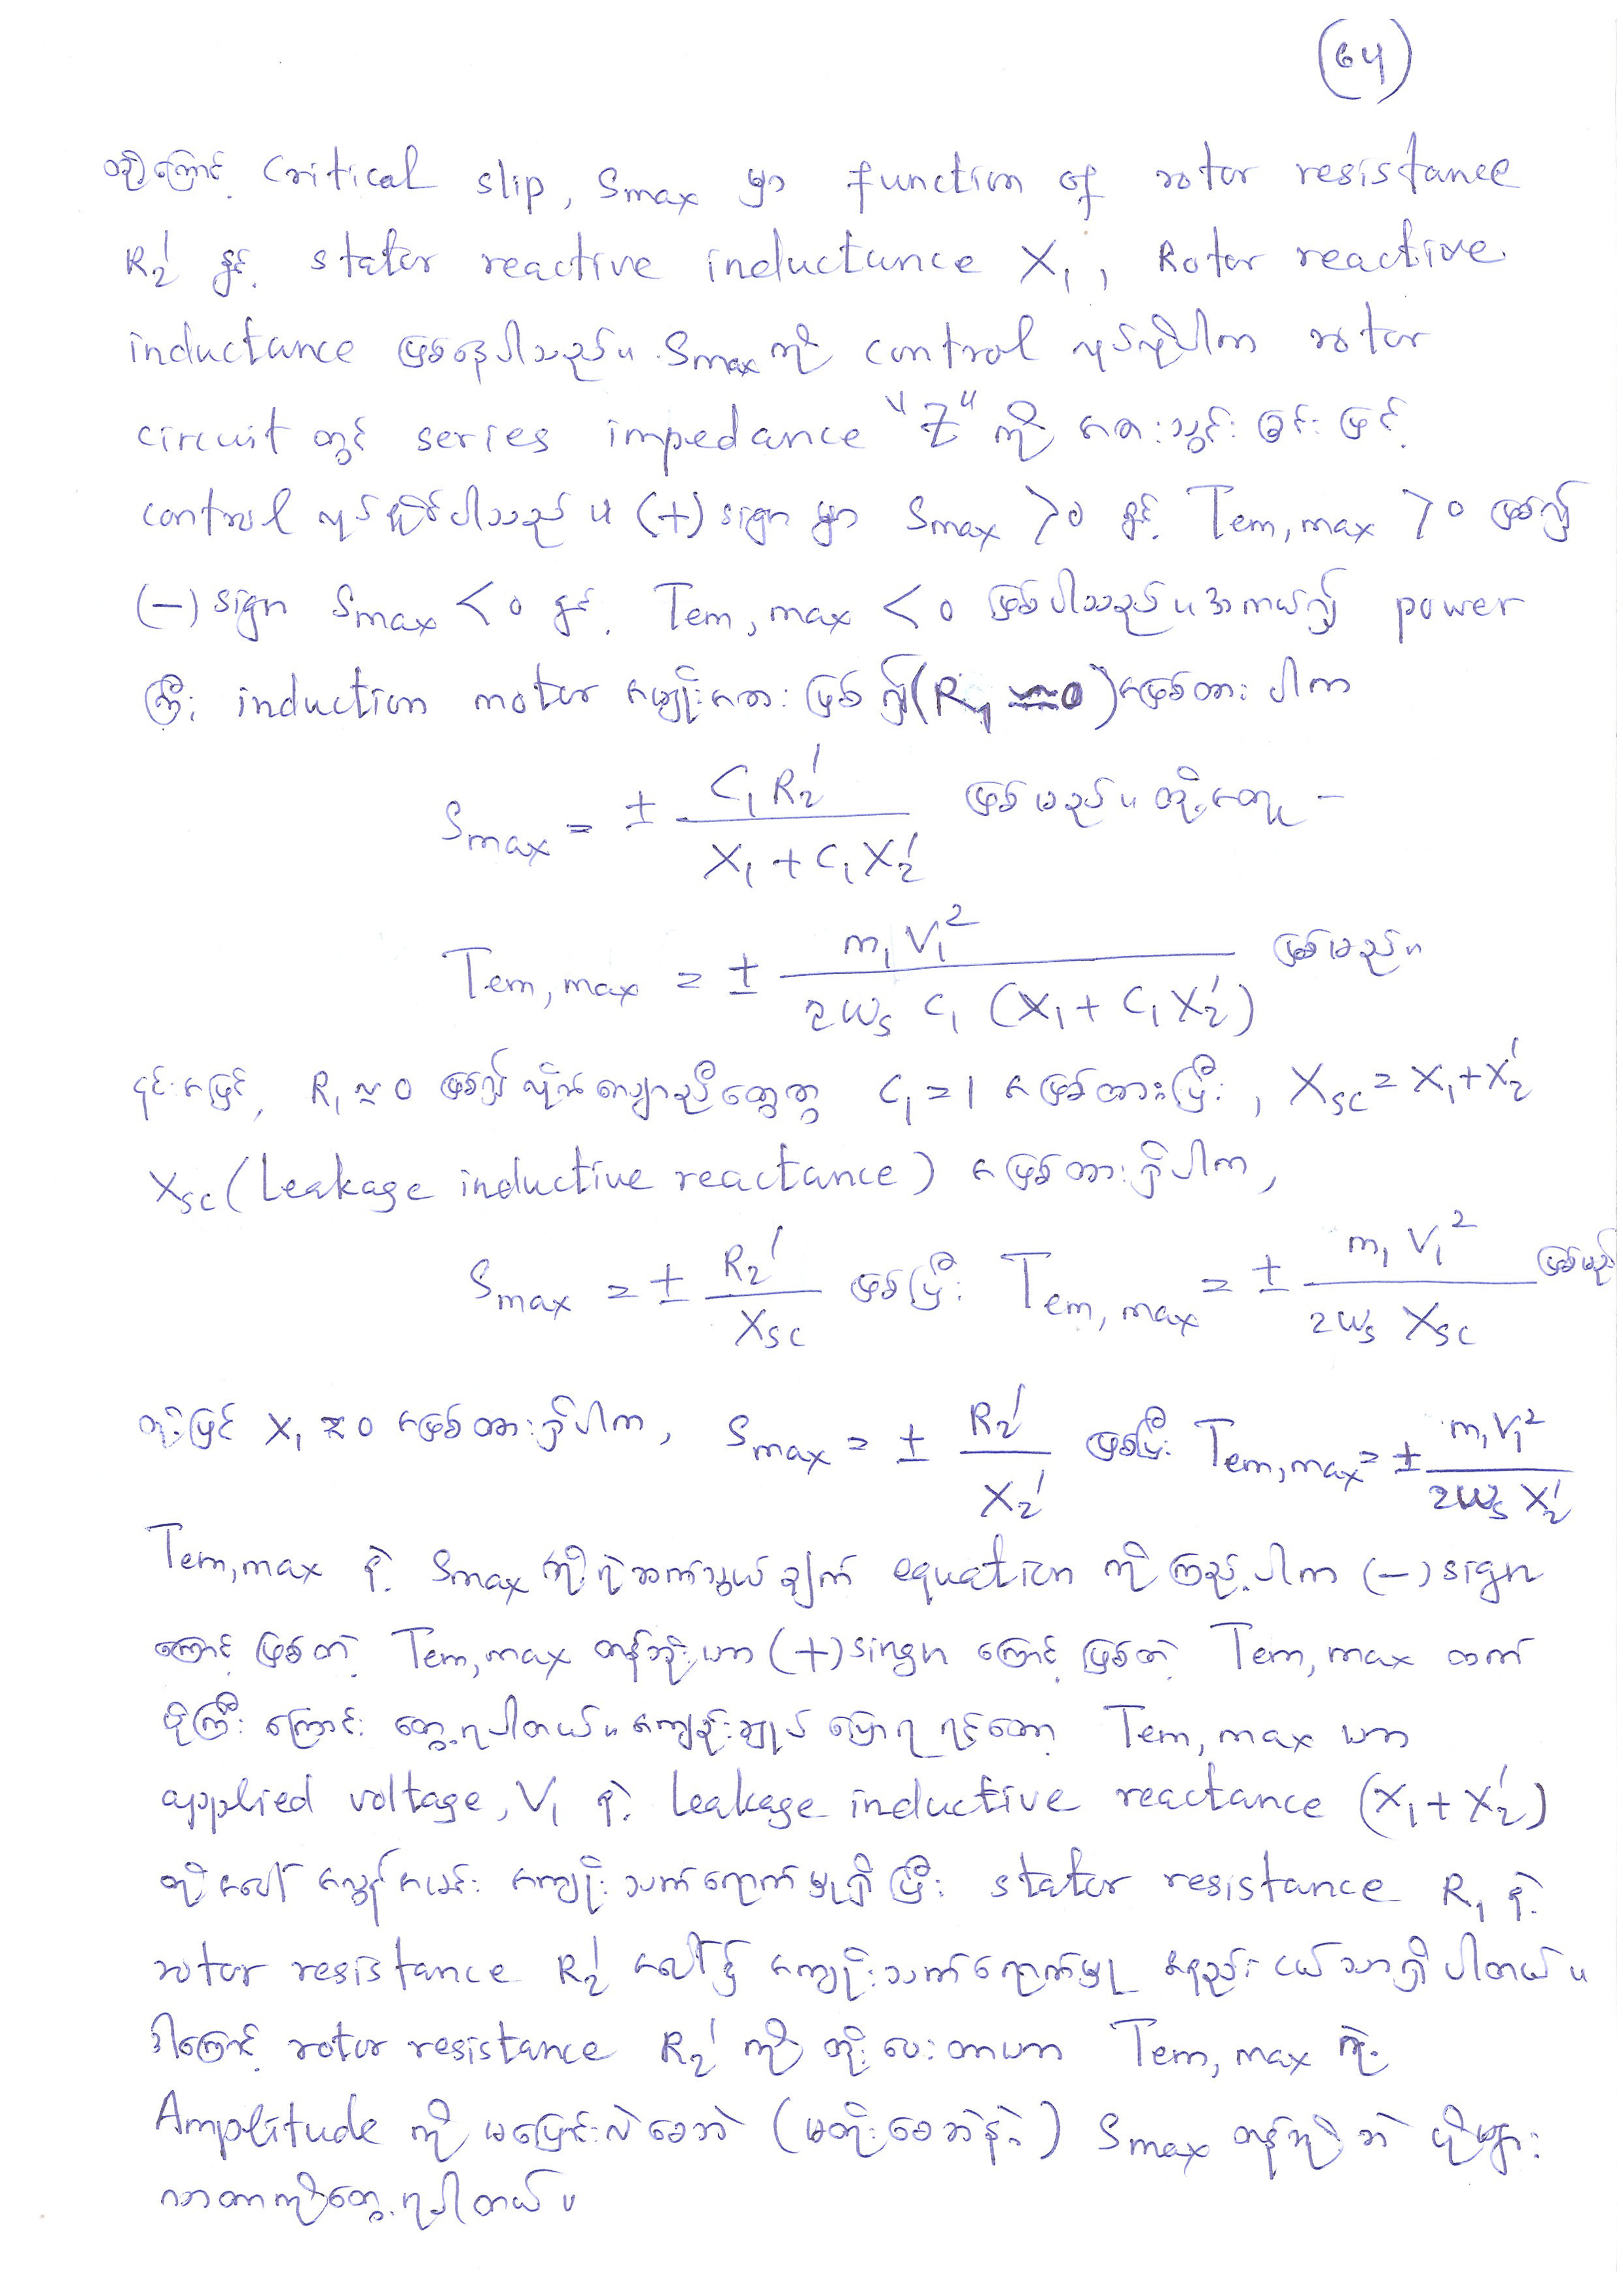 (၆၅)
ထို့ကြောင့် Critical slip, Smax မှာ function of rotor resistance
R₂′ နှင့် stator reactive inductance X₁, Rotor reactive
inductance ဖြစ်နေပါသည်။ Smax ကို control လုပ်လိုပါက rotor
circuit တွင် series impedance "Z" ကို အစားသွင်းခြင်းဖြင့်
control လုပ်နိုင်ပါသည်။ (+) sign မှာ Smax >0 နှင့် Tem, max >0 ဖြစ်၍
(−) sign Smax <0 နှင့် Tem, max <0 ဖြစ်ပါသည်။ အကယ်၍ power
ကြီး induction motor မျိုး ဖြစ်၍ (R₁ ≈0) ဖြစ်ထားပါက
Smax = ± C₁R₂′ / (X₁ + C₁X₂′) ဖြစ်မည်။ ထို့အတူ −
Tem, max = ± m₁V₁² / 2ωs C₁ (X₁ + C₁X₂′) ဖြစ်မည်။
၎င်းအပြင် R₁ ≈ 0 ဖြစ်၍ C₁ = 1 ဖြစ်ထားပြီး, Xsc = X₁+X₂′
Xsc (Leakage inductive reactance) ဖြစ်ထားရှိပါက,
Smax = ± R₂′ / Xsc ဖြစ်ပြီး Tem, max = ± m₁V₁² / 2ωs Xsc ဖြစ်မည်
ထို့ပြင် X₁ ≈ 0 ဖြစ်ထားရှိပါက, Smax = ± R₂′ / X₂′ ဖြစ်ပြီး Tem, max = ± m₁V₁² / 2ωs X₂′
Tem, max နဲ့ Smax တို့ရဲ့ဆက်သွယ်ချက် equation ကိုကြည့်ပါက (−) sign
ကြောင့်ဖြစ်တဲ့ Tem, max တန်ဘိုးဟာ (+) singn ကြောင့်ဖြစ်တဲ့ Tem, max ထက်
ပိုကြီးကြောင်း တွေ့ရပါတယ်။ အကျဉ်းချုပ်ပြောရရင်တော့ Tem, max ဟာ
applied voltage, V₁ နဲ့ Leakage inductive reactance (X₁ + X₂′)
တို့အပေါ် လွန်မင်း အကျိုးသက်ရောက်မှုရှိပြီး stator resistance R₁ နဲ့
rotor resistance R₂′ ပေါ်၌ အကျိုးသက်ရောက်မှု အနည်းငယ်သာရှိပါတယ်။
ဒါကြောင့် rotor resistance R₂′ ကို တိုးပေးတာဟာ Tem, max ရဲ့
Amplitude ကို မပြောင်းလဲစေဘဲ (မတိုးစေဘဲနဲ့) Smax တန်ဘိုးဘဲ ပိုများ
လာတာကိုတွေ့ရပါတယ်။